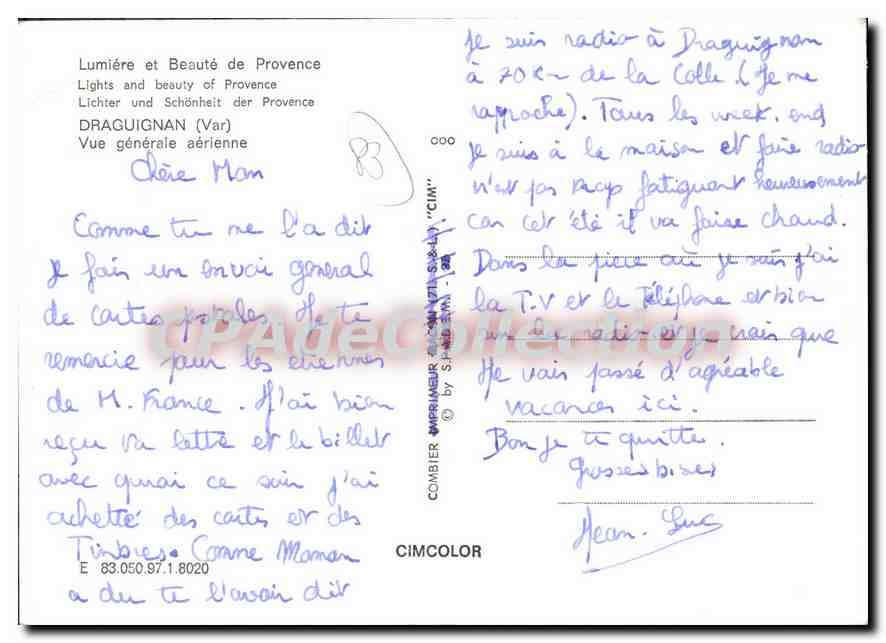 Lumiére et Beauté de Provence
Lights and beauty of Provence
Lichter und Schönheit der Provence
DRAGUIGNAN (Var)
Vue générale aérienne
83
Chère Mam
Comme tu me l'a dit
je fais un envoi general
de cartes postales. Je te
remercie pour les etiennes
de M. France. J'ai bien
reçu ta lettre et le billet
avec quoi ce soir j'ai
achetté des cartes et des
Timbres. Comme Maman
a du te l'avoir dit
E 83.050.97.1.8020
CIMCOLOR
COMBIER IMPRIMEUR MACON (71 S.&L.) "CIM"
© by S.P.A.D.E.M. -
Je suis radio à Draguignan
à 70 Km de la Colle. (Je me
rapproche). Tous les week-end
je suis à la maison et faire radio
n'est pas fatiguant heureusement
car cet été il va faire chaud.
Dans la piece où je suis j'ai
la T.V et le Téléphone et bien
sur la radio et je crois que
Je vais passé d'agréable
vacances ici.
Bon je te quitte.
Grosses bises
Jean-Luc
CPAdeCollection